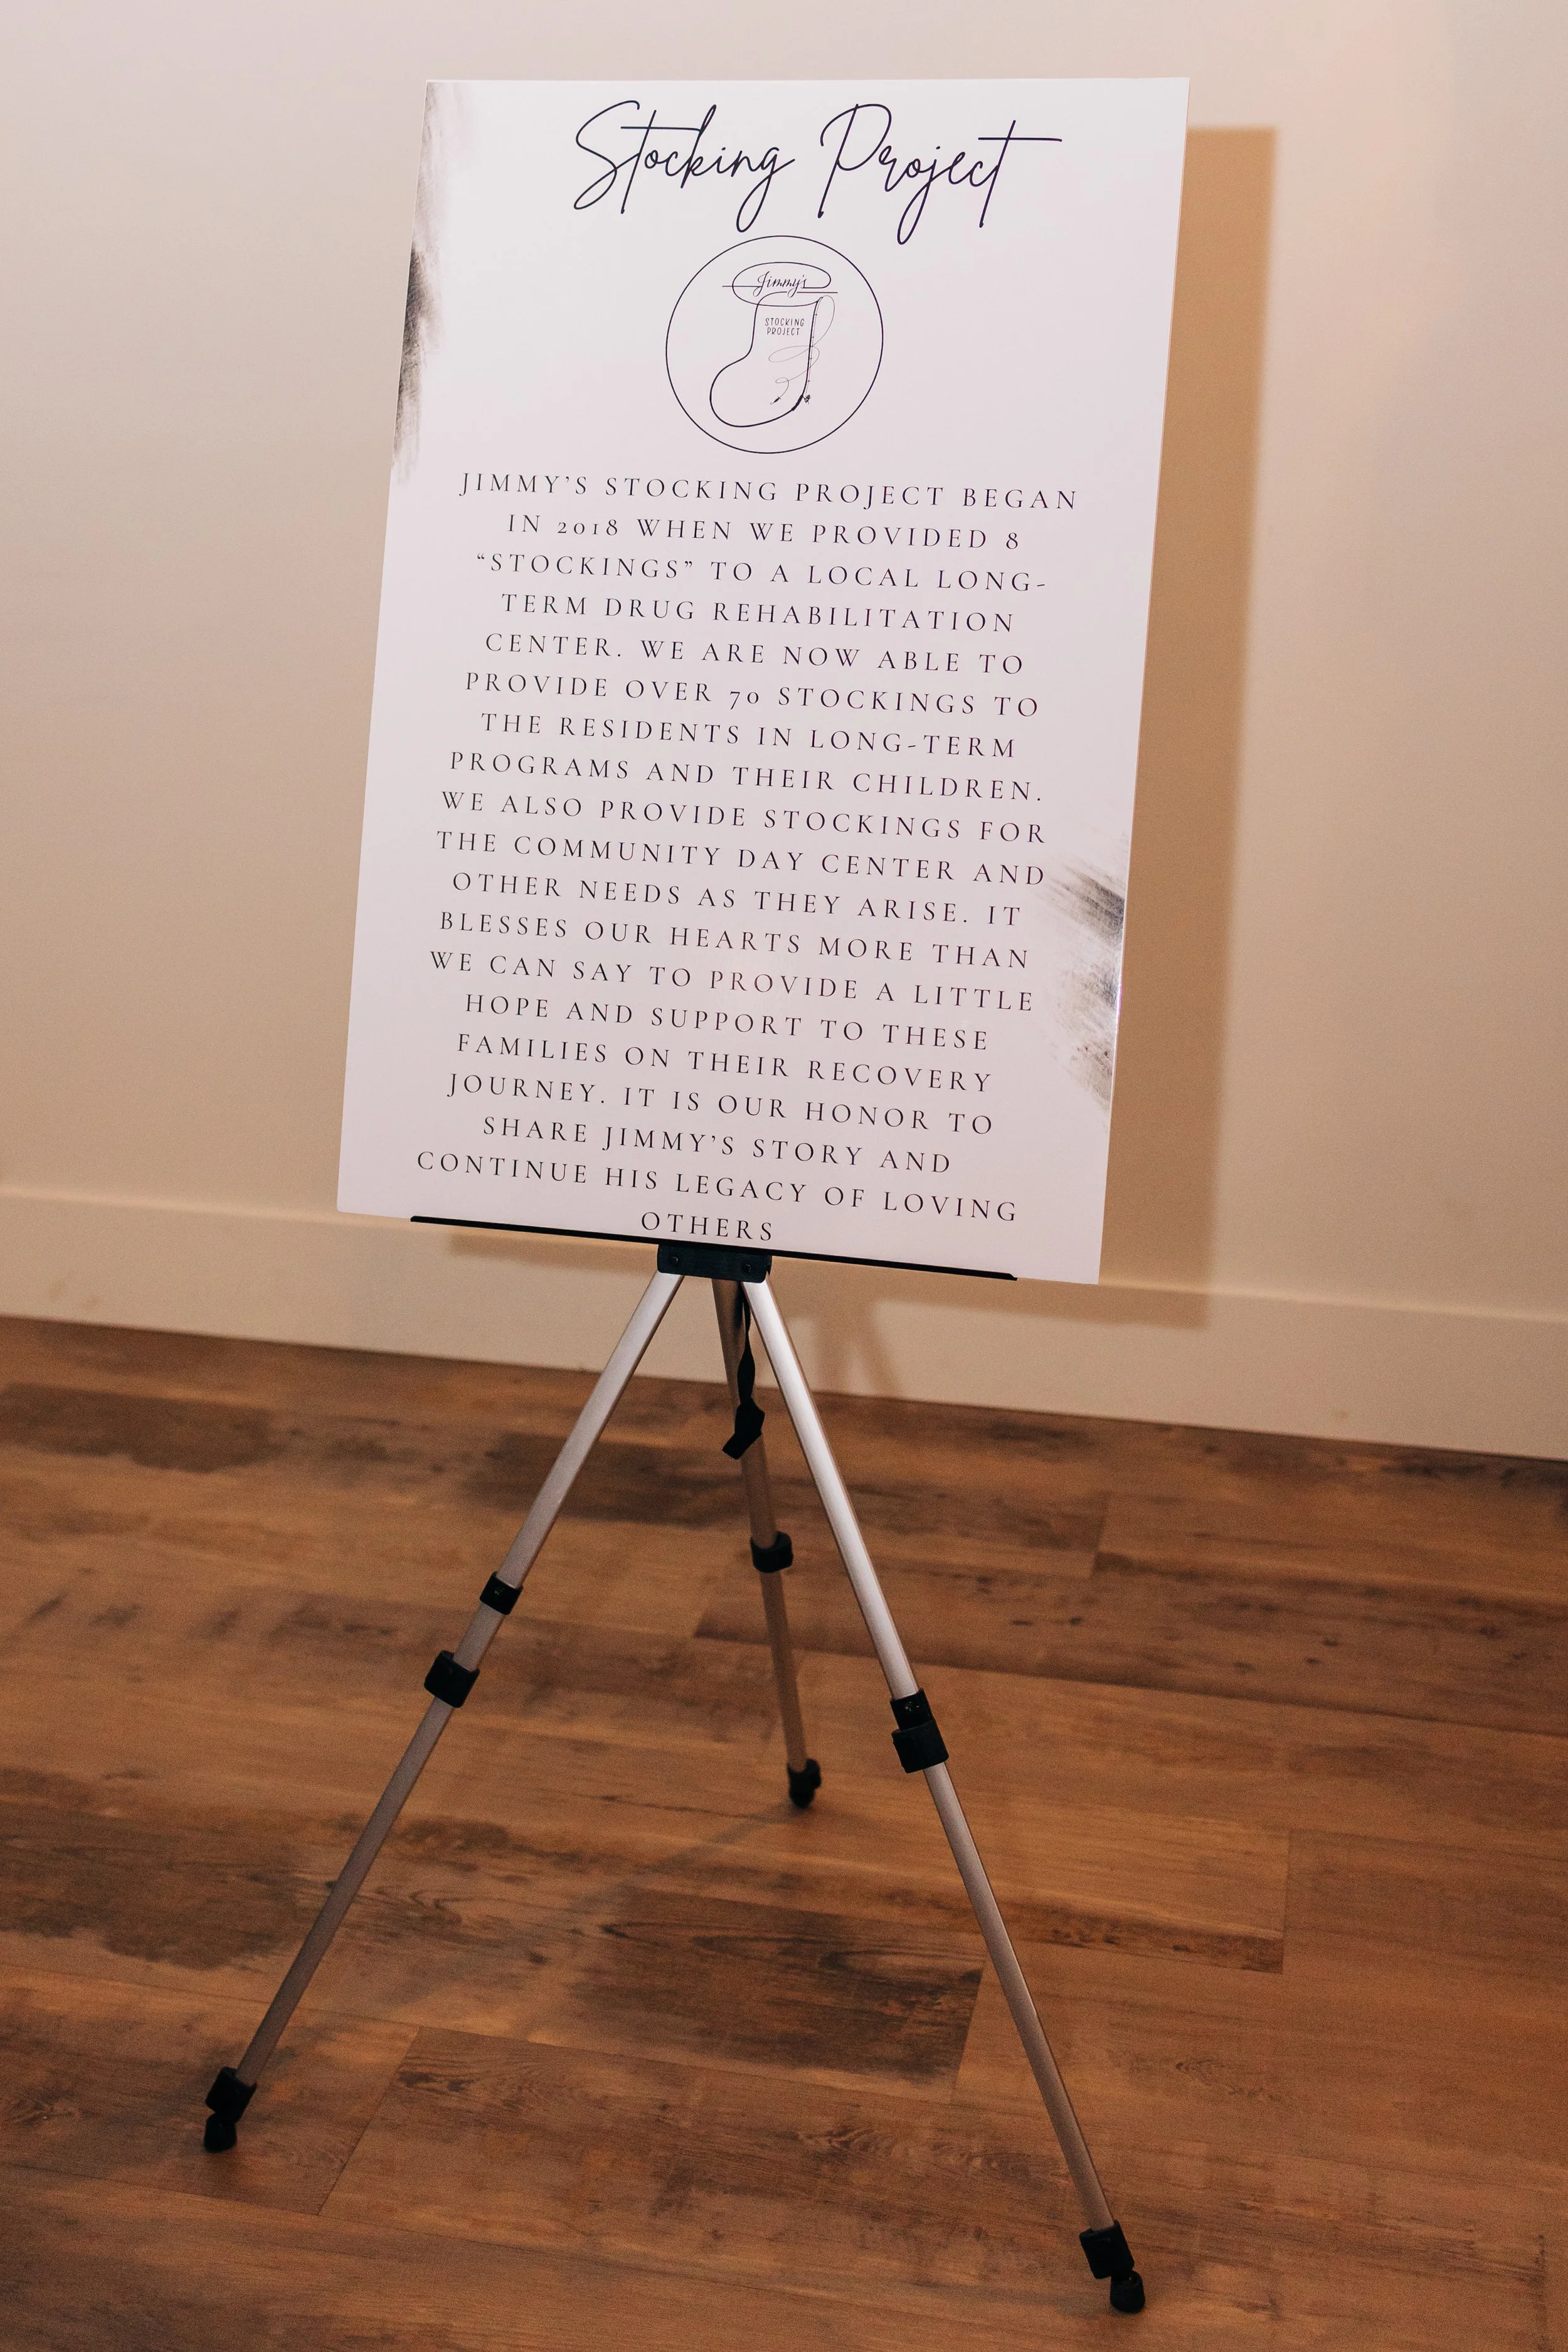 Stocking Project
Jimmy's
STOCKING
PROJECT
JIMMY'S STOCKING PROJECT BEGAN
IN 2018 WHEN WE PROVIDED 8
“STOCKINGS” TO A LOCAL LONG-
TERM DRUG REHABILITATION
CENTER. WE ARE NOW ABLE TO
PROVIDE OVER 70 STOCKINGS TO
THE RESIDENTS IN LONG-TERM
PROGRAMS AND THEIR CHILDREN.
WE ALSO PROVIDE STOCKINGS FOR
THE COMMUNITY DAY CENTER AND
OTHER NEEDS AS THEY ARISE. IT
BLESSES OUR HEARTS MORE THAN
WE CAN SAY TO PROVIDE A LITTLE
HOPE AND SUPPORT TO THESE
FAMILIES ON THEIR RECOVERY
JOURNEY. IT IS OUR HONOR TO
SHARE JIMMY'S STORY AND
CONTINUE HIS LEGACY OF LOVING
OTHERS